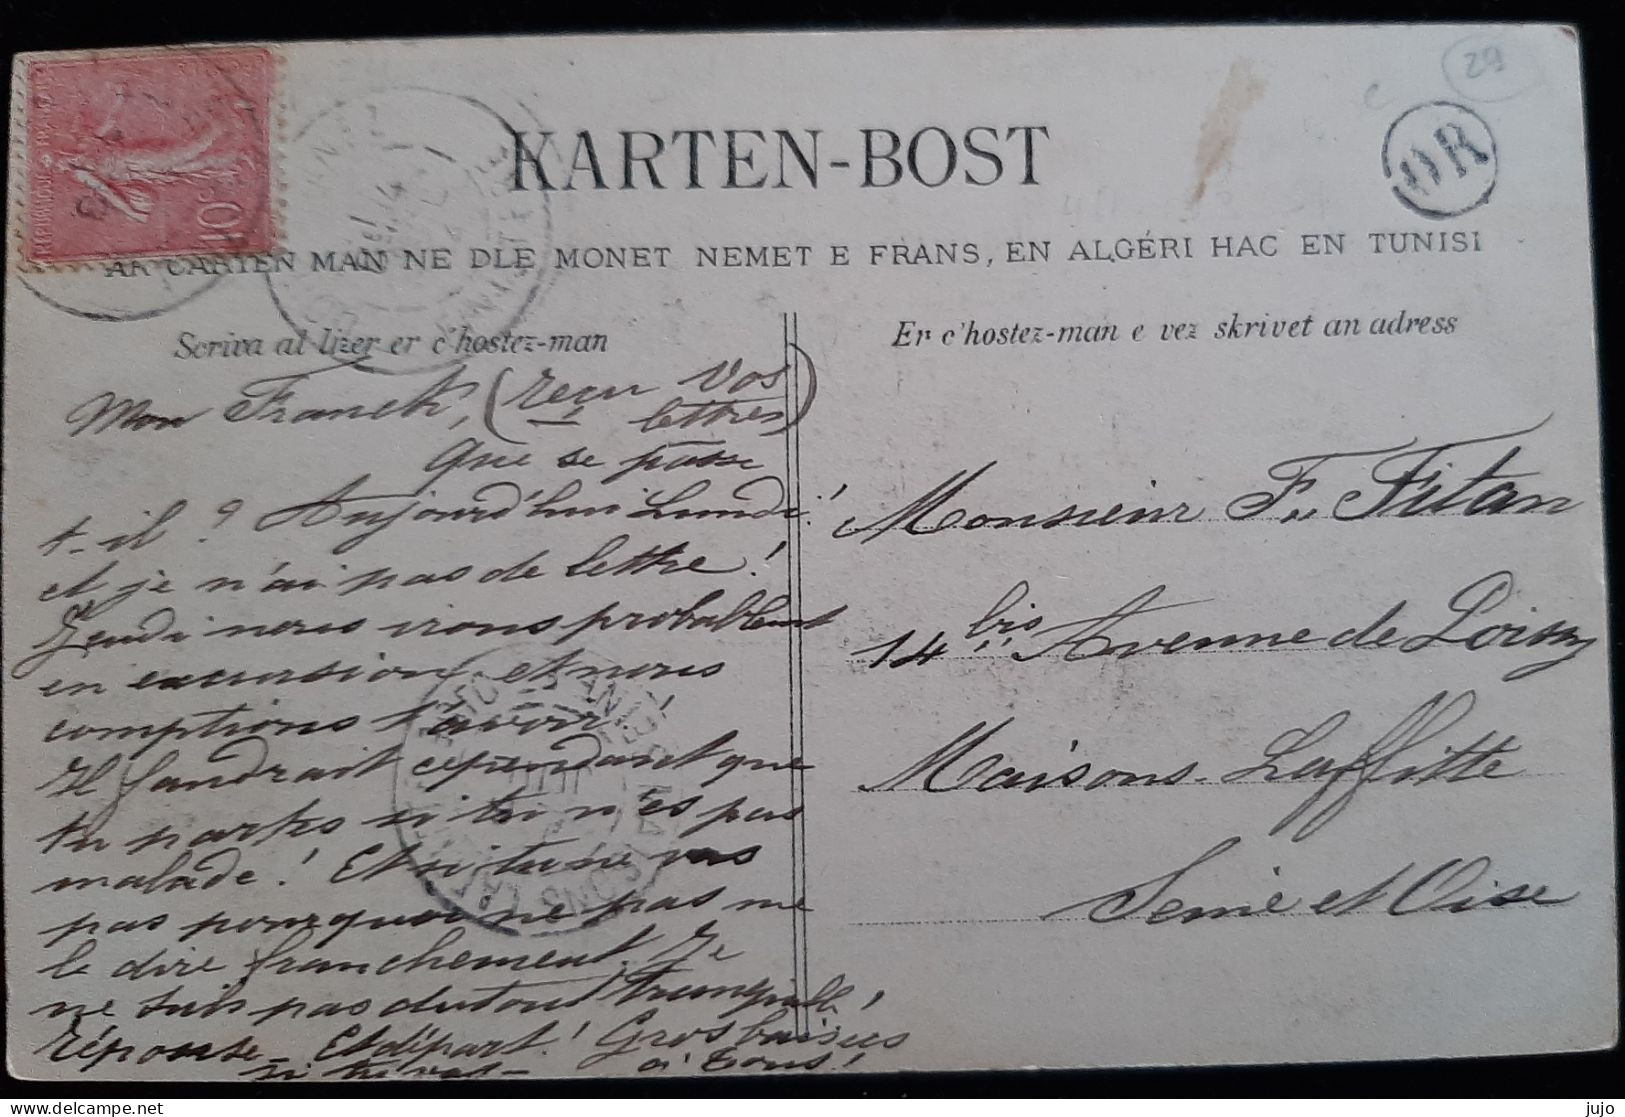 29
KARTEN-BOST
OR
AR CARTEN MAN NE DLE MONET NEMET E FRANS, EN ALGÉRI HAC EN TUNISI
Scriva al lizer er c'hostez-man
Er c'hostez-man e vez skrivet an adress
Mon Franck, (reçu vos
lettres)
Que se passe
t-il ? Aujourd'hui Lundi !
et je n'ai pas de lettre !
Jeudi nous irons probablemt
en excursion et nous
comptions t'avoir !
Il faudrait cependant que
tu partes si tu n'es pas
malade ! Et si tu ne vas
pas pourquoi ne pas me
le dire franchement. Je
ne suis pas du tout tranquille !
Réponse - Et départ ! Gros baisers
si tu vas - à tous !
Monsieur F. Fitan
14 bis Avenue de Poissy
Maisons-Laffitte
Seine et Oise
jujo